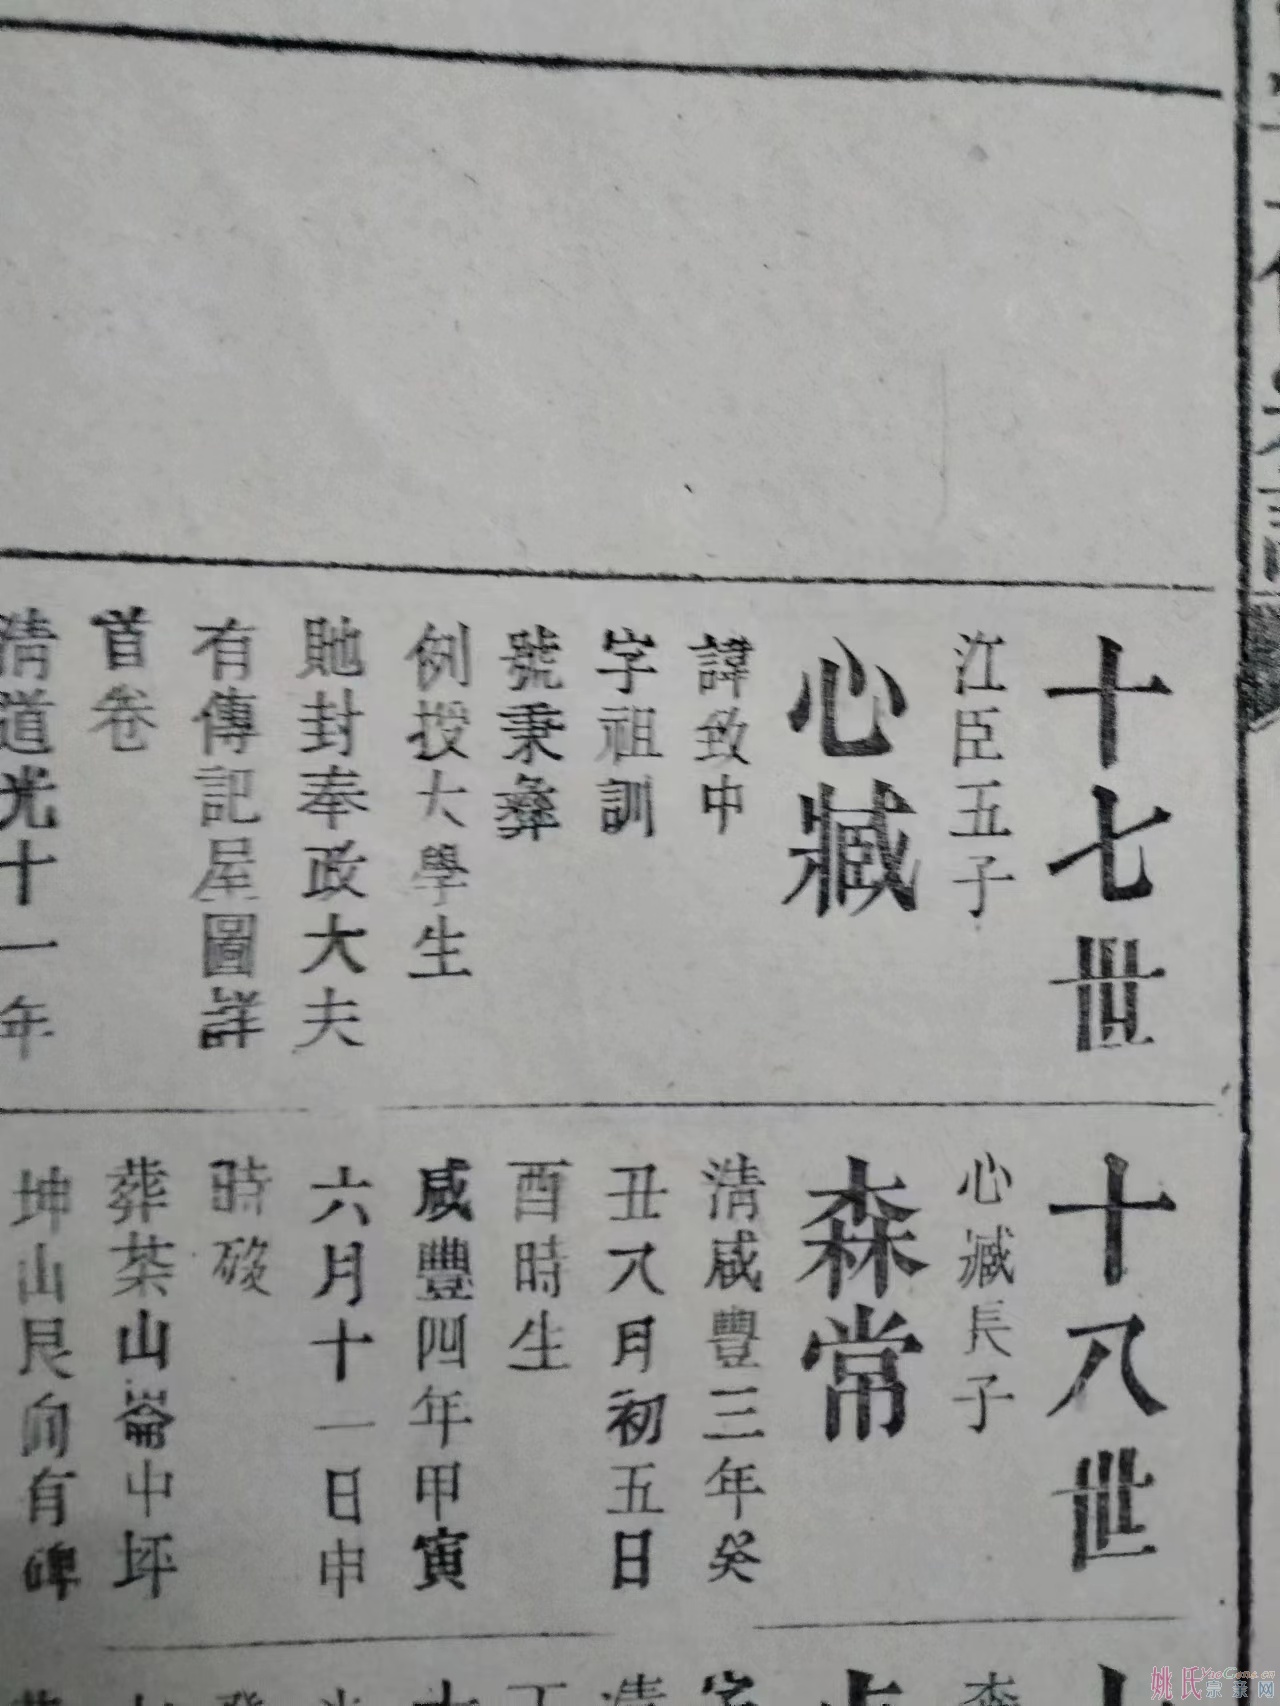 十七世
江臣五子
心臧
諱致中
字祖訓
號秉彝
例授大學生
貤封奉政大夫
有傳記屋圖詳
首卷
清道光十一年
十八世
心臧長子
森常
清咸豐三年癸
丑八月初五日
酉時生
咸豐四年甲寅
六月十一日申
時歿
葬茶山崙中坪
坤山艮向有碑
姚氏宗亲网